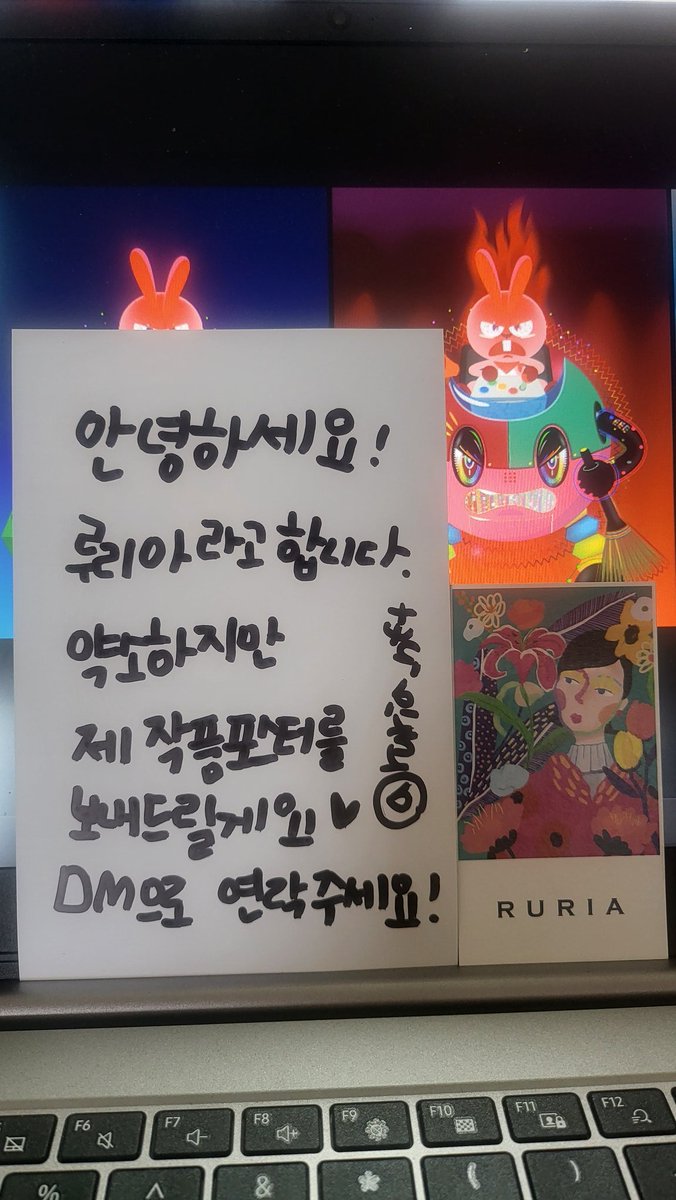 안녕하세요!
류리아라고 합니다.
약소하지만
제 작품포스터를
보내드릴게요♥
DM으로 연락주세요!
RURIA
F6
F7
F8
F9
F10
F11
F12
%
^
&
*
(
)